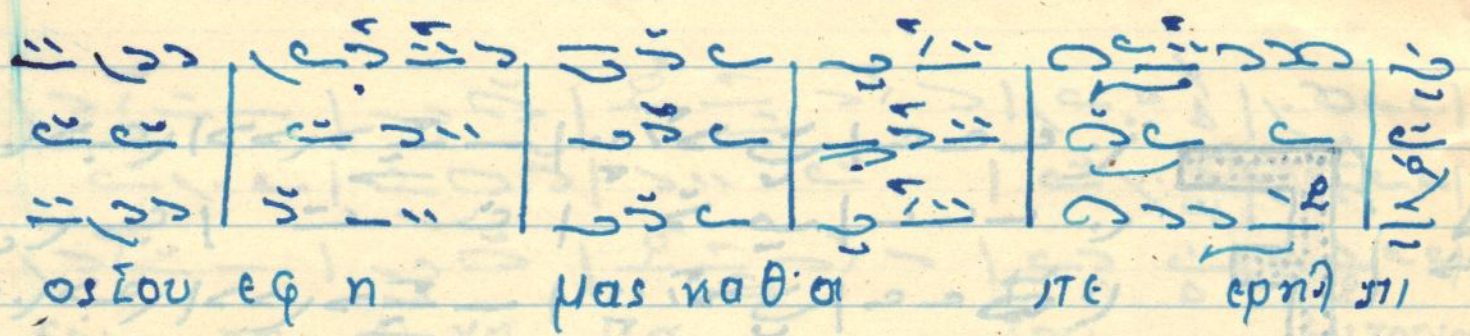 ος Σου εφ η μας κα θα πε ερηλ πι